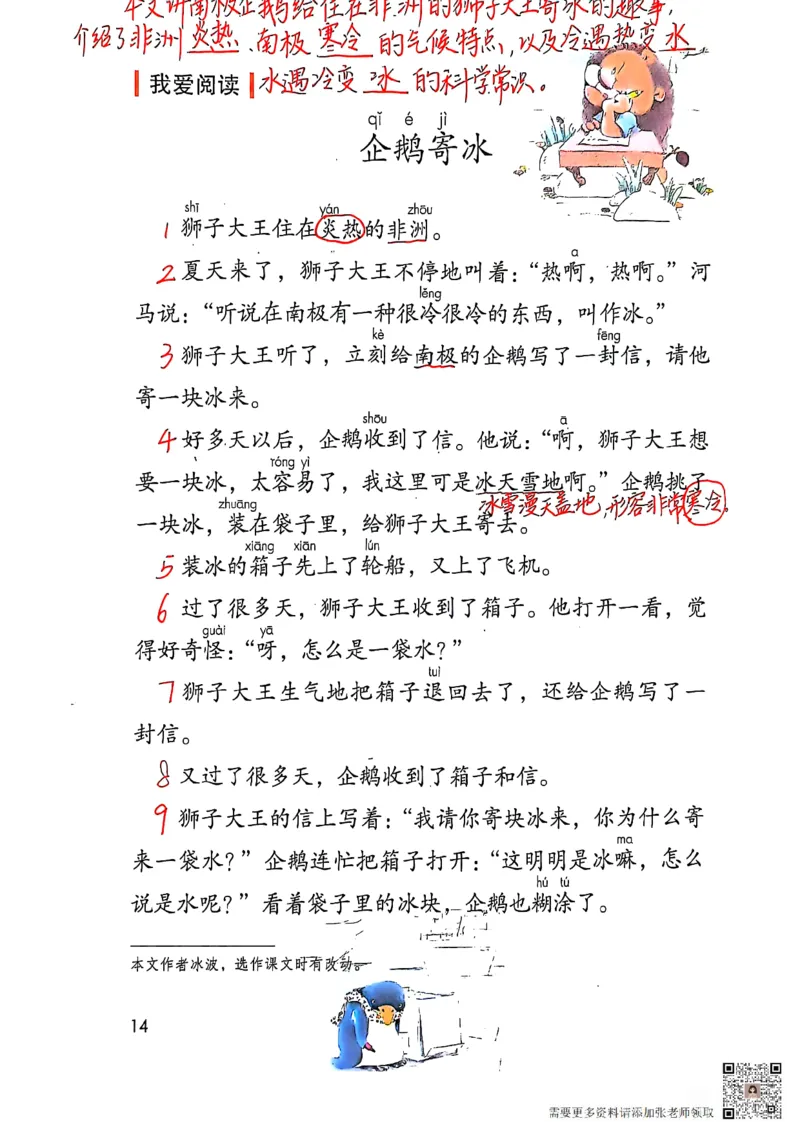 本文讲南极企鹅给住在非洲的狮子大王寄冰的趣事,
介绍了非洲炎热、南极寒冷的气候特点,以及冷遇热变水
我爱阅读 水遇冷变冰的科学常识。
qǐ é jì
企鹅寄冰
shī yán zhōu
1 狮子大王住在炎热的非洲。
a
2 夏天来了，狮子大王不停地叫着：“热啊，热啊。”河
lěng
马说：“听说在南极有一种很冷很冷的东西，叫作冰。”
kè fēng
3 狮子大王听了，立刻给南极的企鹅写了一封信，请他
寄一块冰来。
shōu ā
4 好多天以后，企鹅收到了信。他说：“啊，狮子大王想
róng yì
要一块冰，太容易了，我这里可是冰天雪地啊。”企鹅挑了
冰雪漫天盖地,形容非常寒冷.
zhuāng
一块冰，装在袋子里，给狮子大王寄去。
xiāng xiān lún
5 装冰的箱子先上了轮船，又上了飞机。
6 过了很多天，狮子大王收到了箱子。他打开一看，觉
guài yā
得好奇怪：“呀，怎么是一袋水？”
tuì
7 狮子大王生气地把箱子退回去了，还给企鹅写了一
封信。
8 又过了很多天，企鹅收到了箱子和信。
9 狮子大王的信上写着：“我请你寄块冰来，你为什么寄
ma
来一袋水？”企鹅连忙把箱子打开：“这明明是冰嘛，怎么
hú tú
说是水呢？”看着袋子里的冰块，企鹅也糊涂了。
本文作者冰波，选作课文时有改动。
14
需要更多资料请添加张老师领取